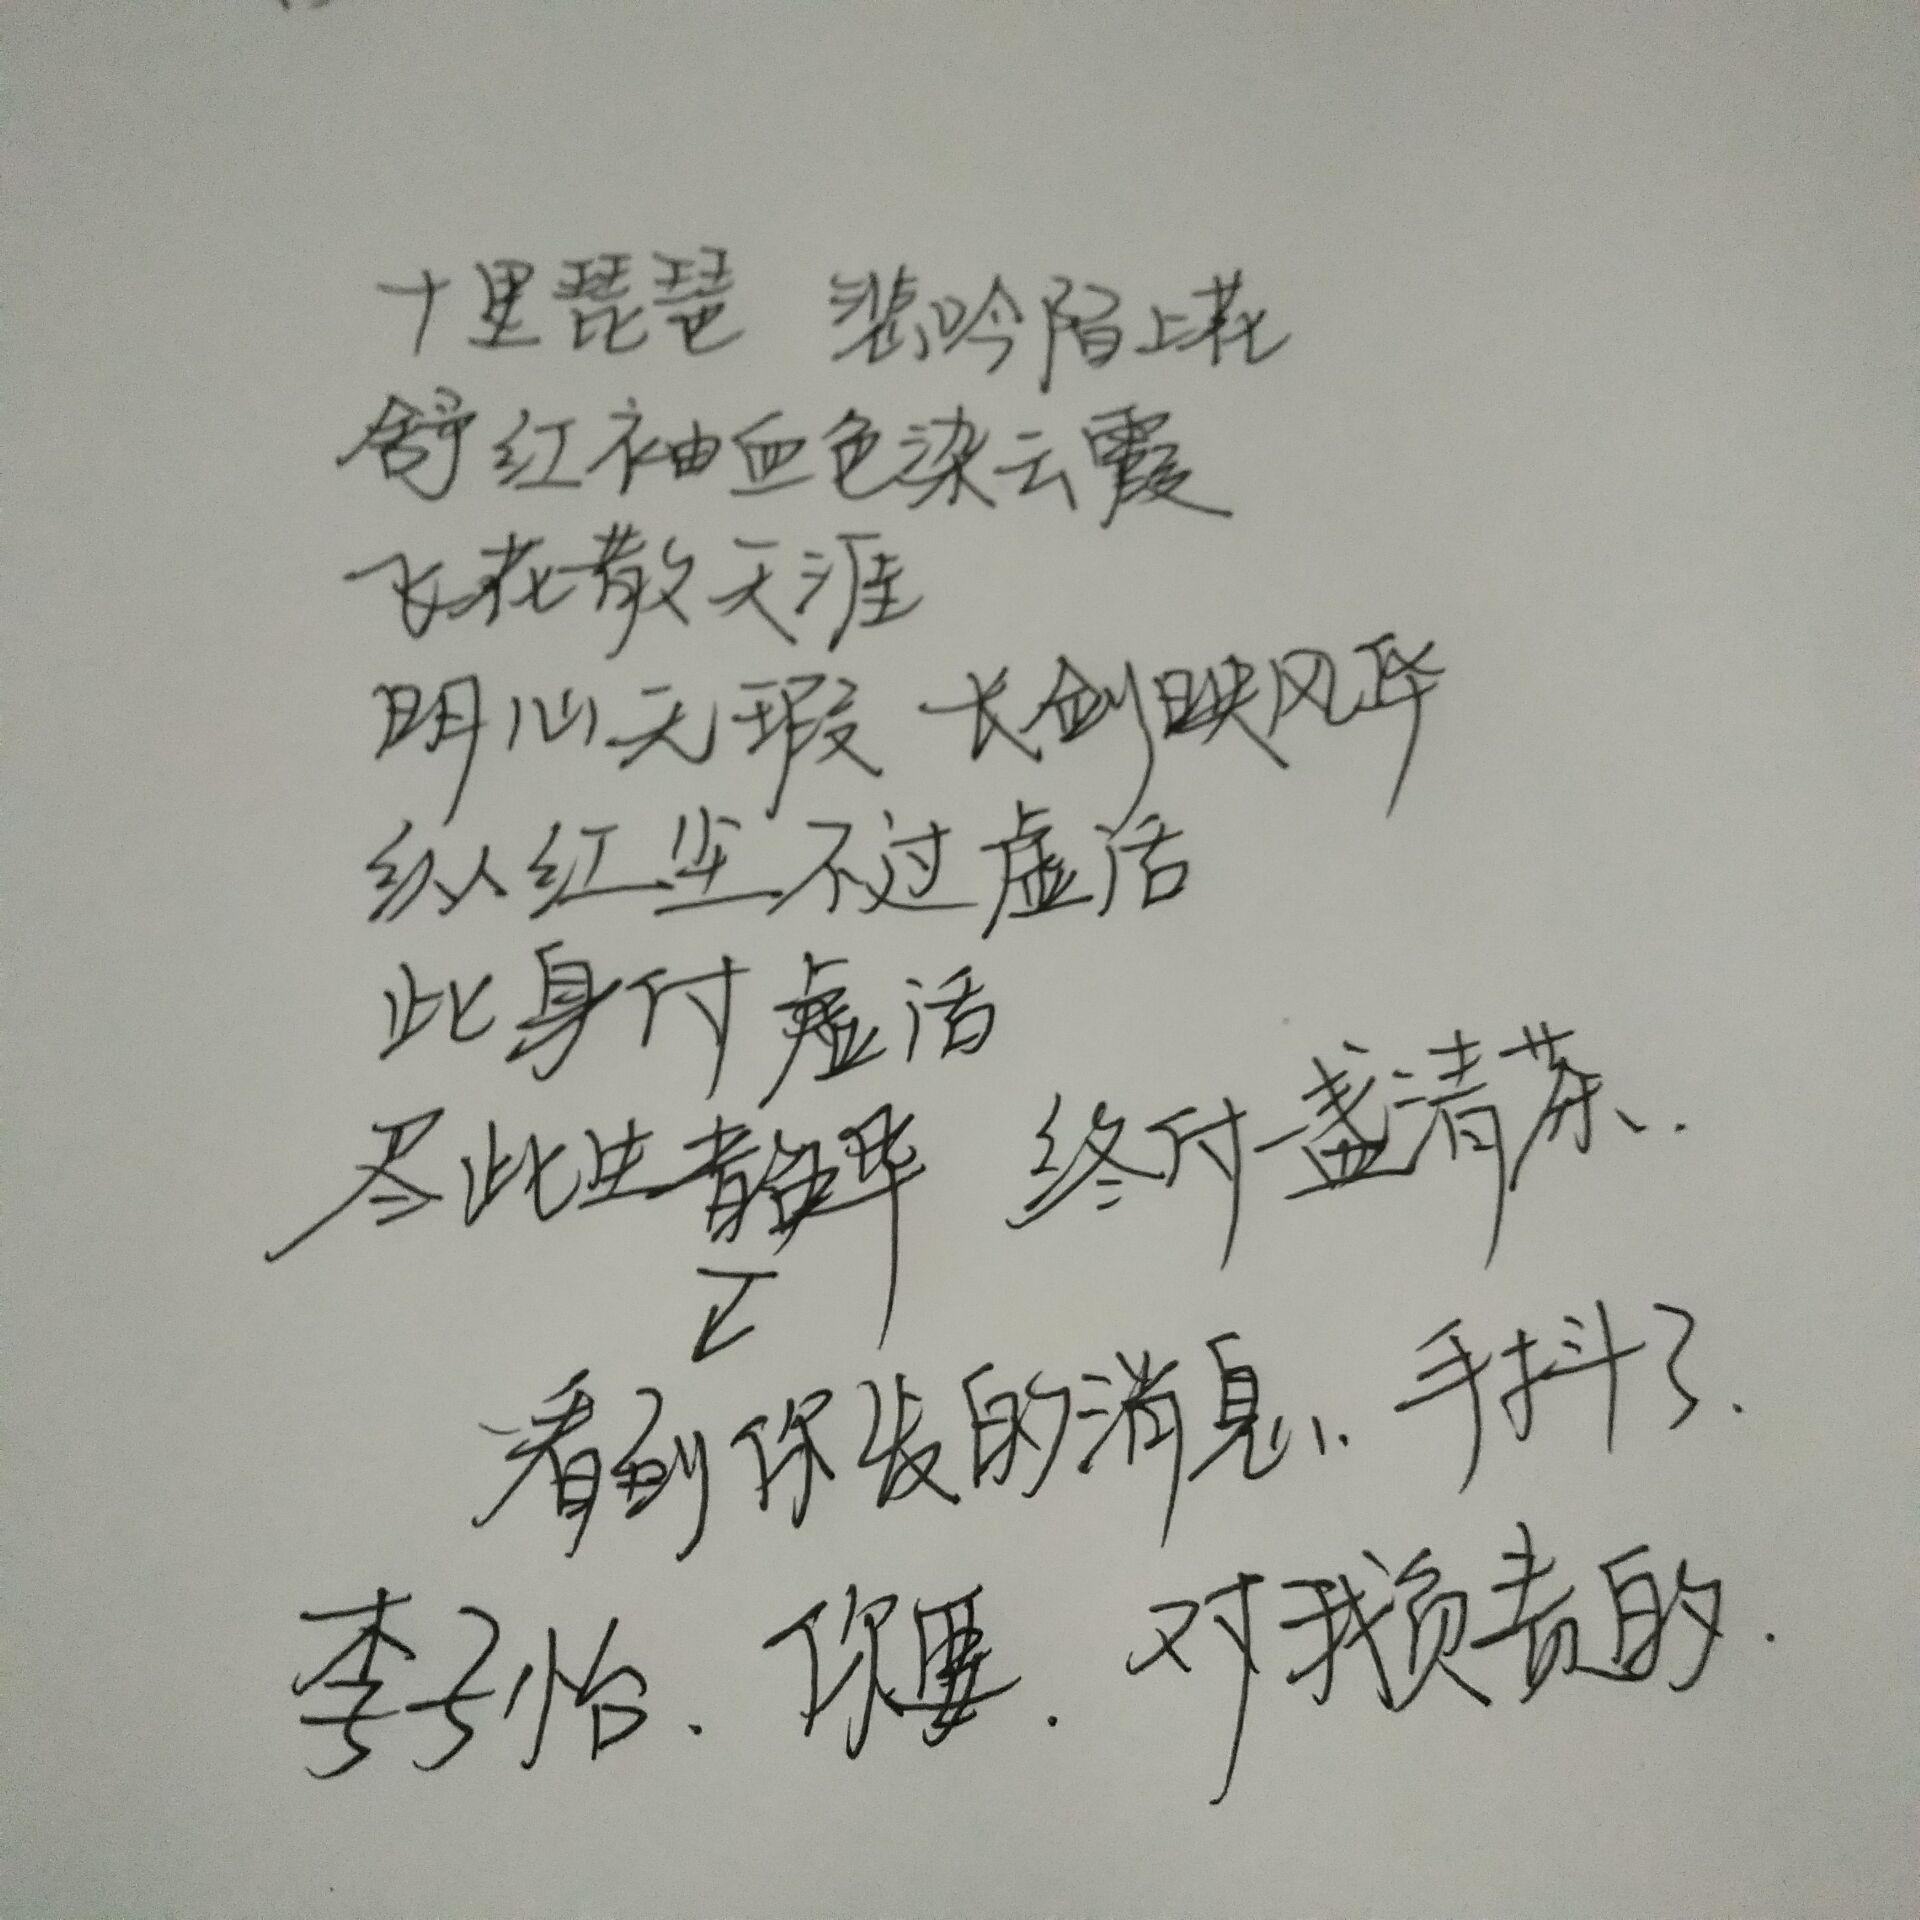 十里琵琶 悲吟陌上花
舒红袖血色染云霞
飞花散天涯
明心无瑕 长剑映风华
纵红尘不过虚活
此身付虚活
尽此生韶华 终付一盏清茶.
看到你发的消息. 手抖了.
李子怡. 你要. 对我负责的.